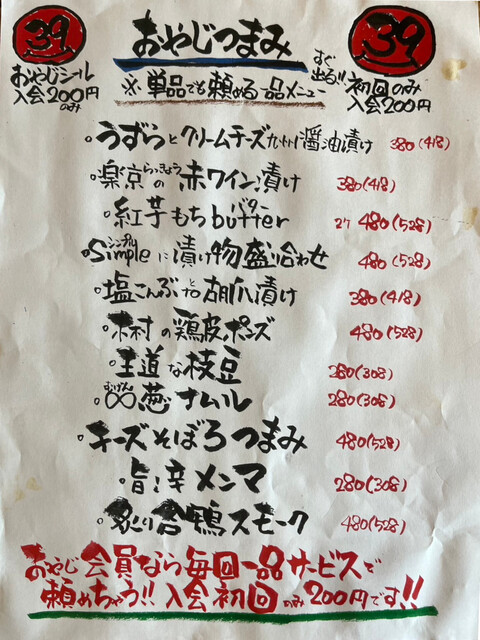 39
おやじつまみ
39
おやじシール
入会200円
のみ
すぐ
出る!!
初回のみ
入会200円
※単品でも頼める一品メニュー
うずらとクリームチーズ九州醤油漬け 380(418)
楽京の赤ワイン漬け 380(418)
らっきょう
紅芋もちbutter 2ケ 480(528)
バター
Simpleに漬け物盛り合わせ 480(528)
シンプル
塩こんぶと胡瓜漬け 380(418)
木村の鶏皮ポンズ 480(528)
王道な枝豆 280(308)
∞葱ナムル 280(308)
むげん
チーズそぼろつまみ 480(528)
旨辛メンマ 280(308)
炙り合鴨スモーク 480(528)
おやじ会員なら毎回一品サービスで
頼めちゃう!!入会初回のみ200円です!!